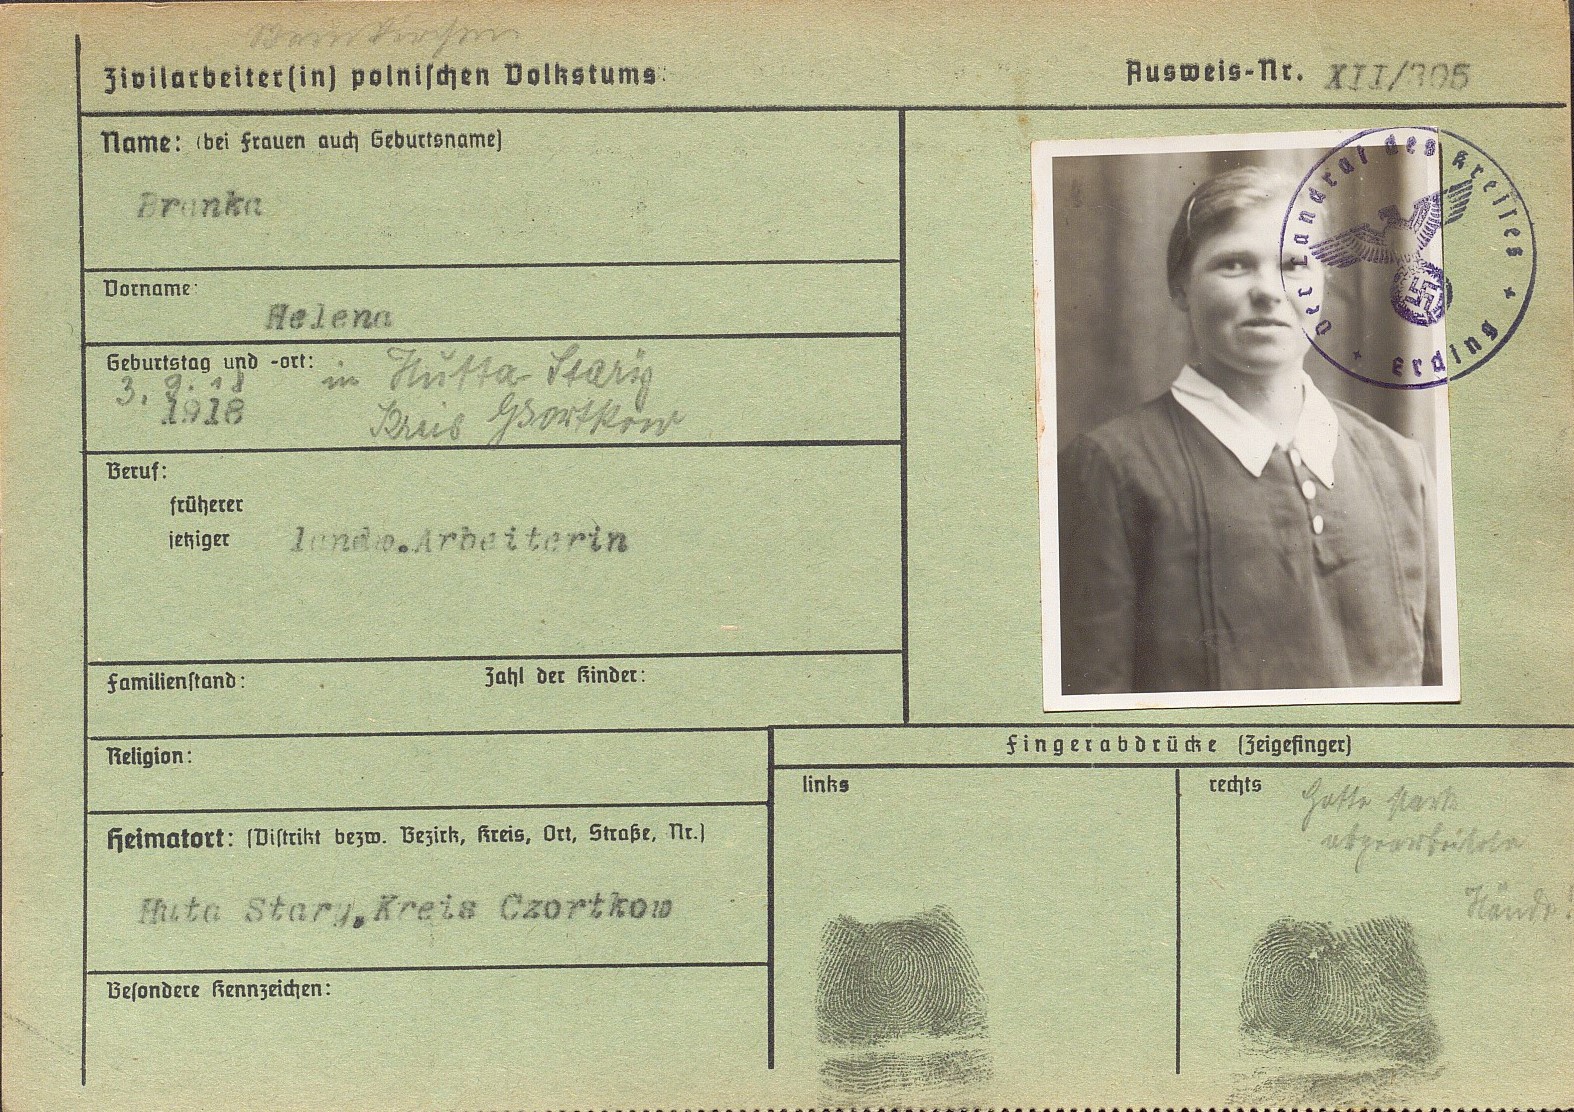 Zivilarbeiter(in) polnischen Volkstums:
Ausweis-Nr. XII/305
Name: (bei Frauen auch Geburtsname)
Branka
Vorname:
Helena
Geburtstag und -ort:
3. 9. 18 in Hutta Starij
1918 Kreis Czortkow
Beruf:
früherer
jetziger landw.Arbeiterin
Familienstand: Zahl der Kinder:
Religion:
Heimatort: (Distrikt bezw. Bezirk, Kreis, Ort, Straße, Nr.)
Huta Stary,Kreis Czortkow
Besondere Kennzeichen:
Der Landrat des Kreises
* Erding *
Fingerabdrücke (Zeigefinger)
links
rechts
Hatte stark
abgearbeitete
Hände!